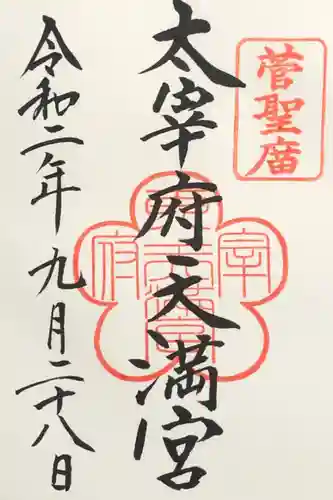 菅聖廟
太宰府天満宮
令和二年九月二十八日